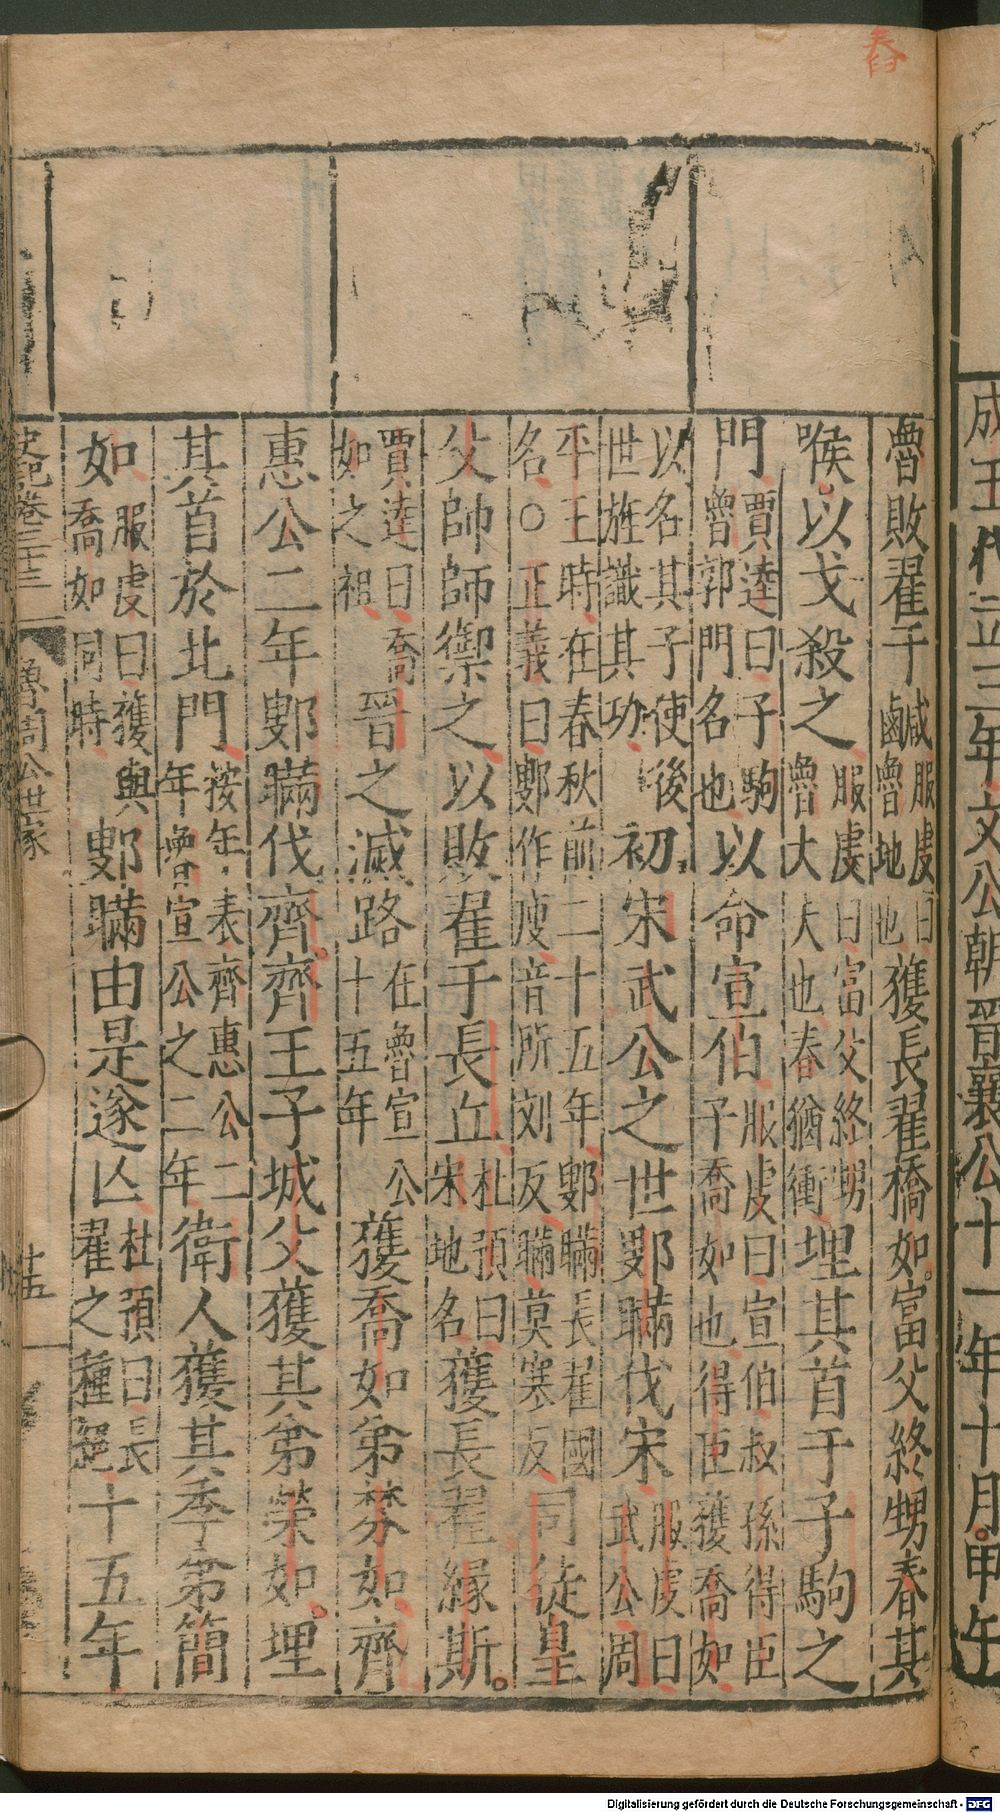 成王代立三年文公朝晉襄公十一年十月甲午
魯敗翟于鹹服虔曰鹵魯地也獲長翟喬如富父終甥舂其
喉以戈殺之服虔曰富父終甥魯大夫也舂猶衝埋其首于子駒之
門賈逵曰子駒魯郭門名也以命宣伯服虔曰宣伯叔孫得臣子喬如也得臣獲喬如
以名其子使後世旌識其功初宋武公之世鄋瞞伐宋服虔曰武公周
平王時在春秋前二十五年鄋瞞長翟國名○正義曰鄋作廋音所劉反瞞莫寒反司徒皇
父帥師禦之以敗翟于長丘杜預曰宋地名獲長翟緣斯
賈逵曰喬如之祖晉之滅路在魯宣公十五年獲喬如弟棼如齊
惠公二年鄋瞞伐齊齊王子城父獲其弟榮如埋
其首於北門按年表齊惠公二年魯宣公之二年衛人獲其季弟簡
如服虔曰獲與喬如同時鄋瞞由是遂亡杜預曰長翟之種絕十五年
史記卷三十三
魯周公世家
十五
Digitalisierung gefördert durch die Deutsche Forschungsgemeinschaft - DFG